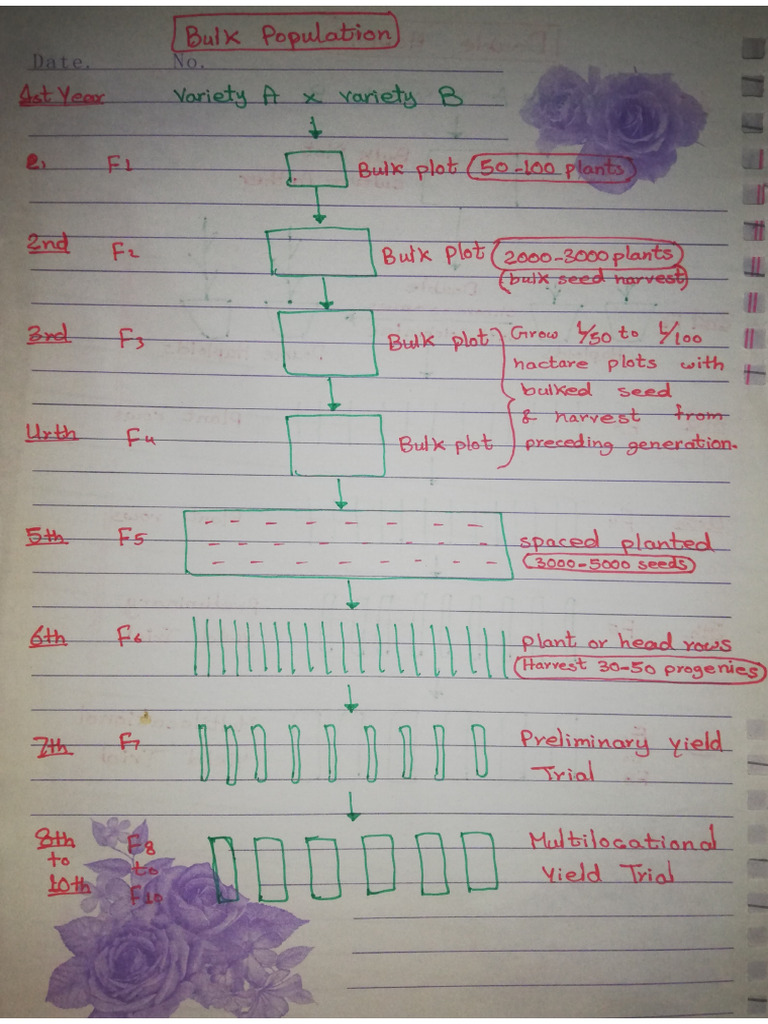 Bulk Population
Date. No.
1st Year Variety A x variety B
F1 Bulk plot (50-100 plants)
2nd F2 Bulk plot (2000-3000 plants)
(bulk seed harvest)
3rd F3 Bulk plot Grow 1/50 to 1/100
hactare plots with
bulked seed
& harvest from
4rth F4 Bulk plot preceding generation.
5th F5 spaced planted
(3000-5000 seeds)
6th F6 plant or head rows
(Harvest 30-50 progenies)
7th F7 Preliminary yield
Trial
8th F8 Multilocational
to to Yield Trial
10th F10